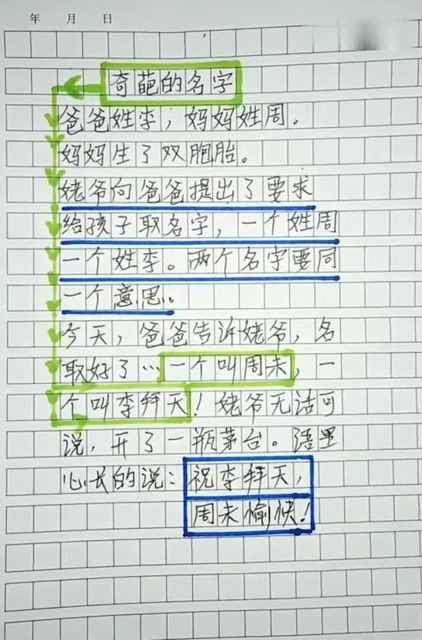 年 月 日
奇葩的名字
爸爸姓李，妈妈姓周。
妈妈生了双胞胎。
姥爷向爸爸提出了要求
给孩子取名字，一个姓周
一个姓李。两个名字要同
一个意思。
今天，爸爸告诉姥爷，名
取好了…一个叫周末，一
个叫李拜天！姥爷无话可
说，开了一瓶茅台。语重
心长的说：祝李拜天，
周末愉快！